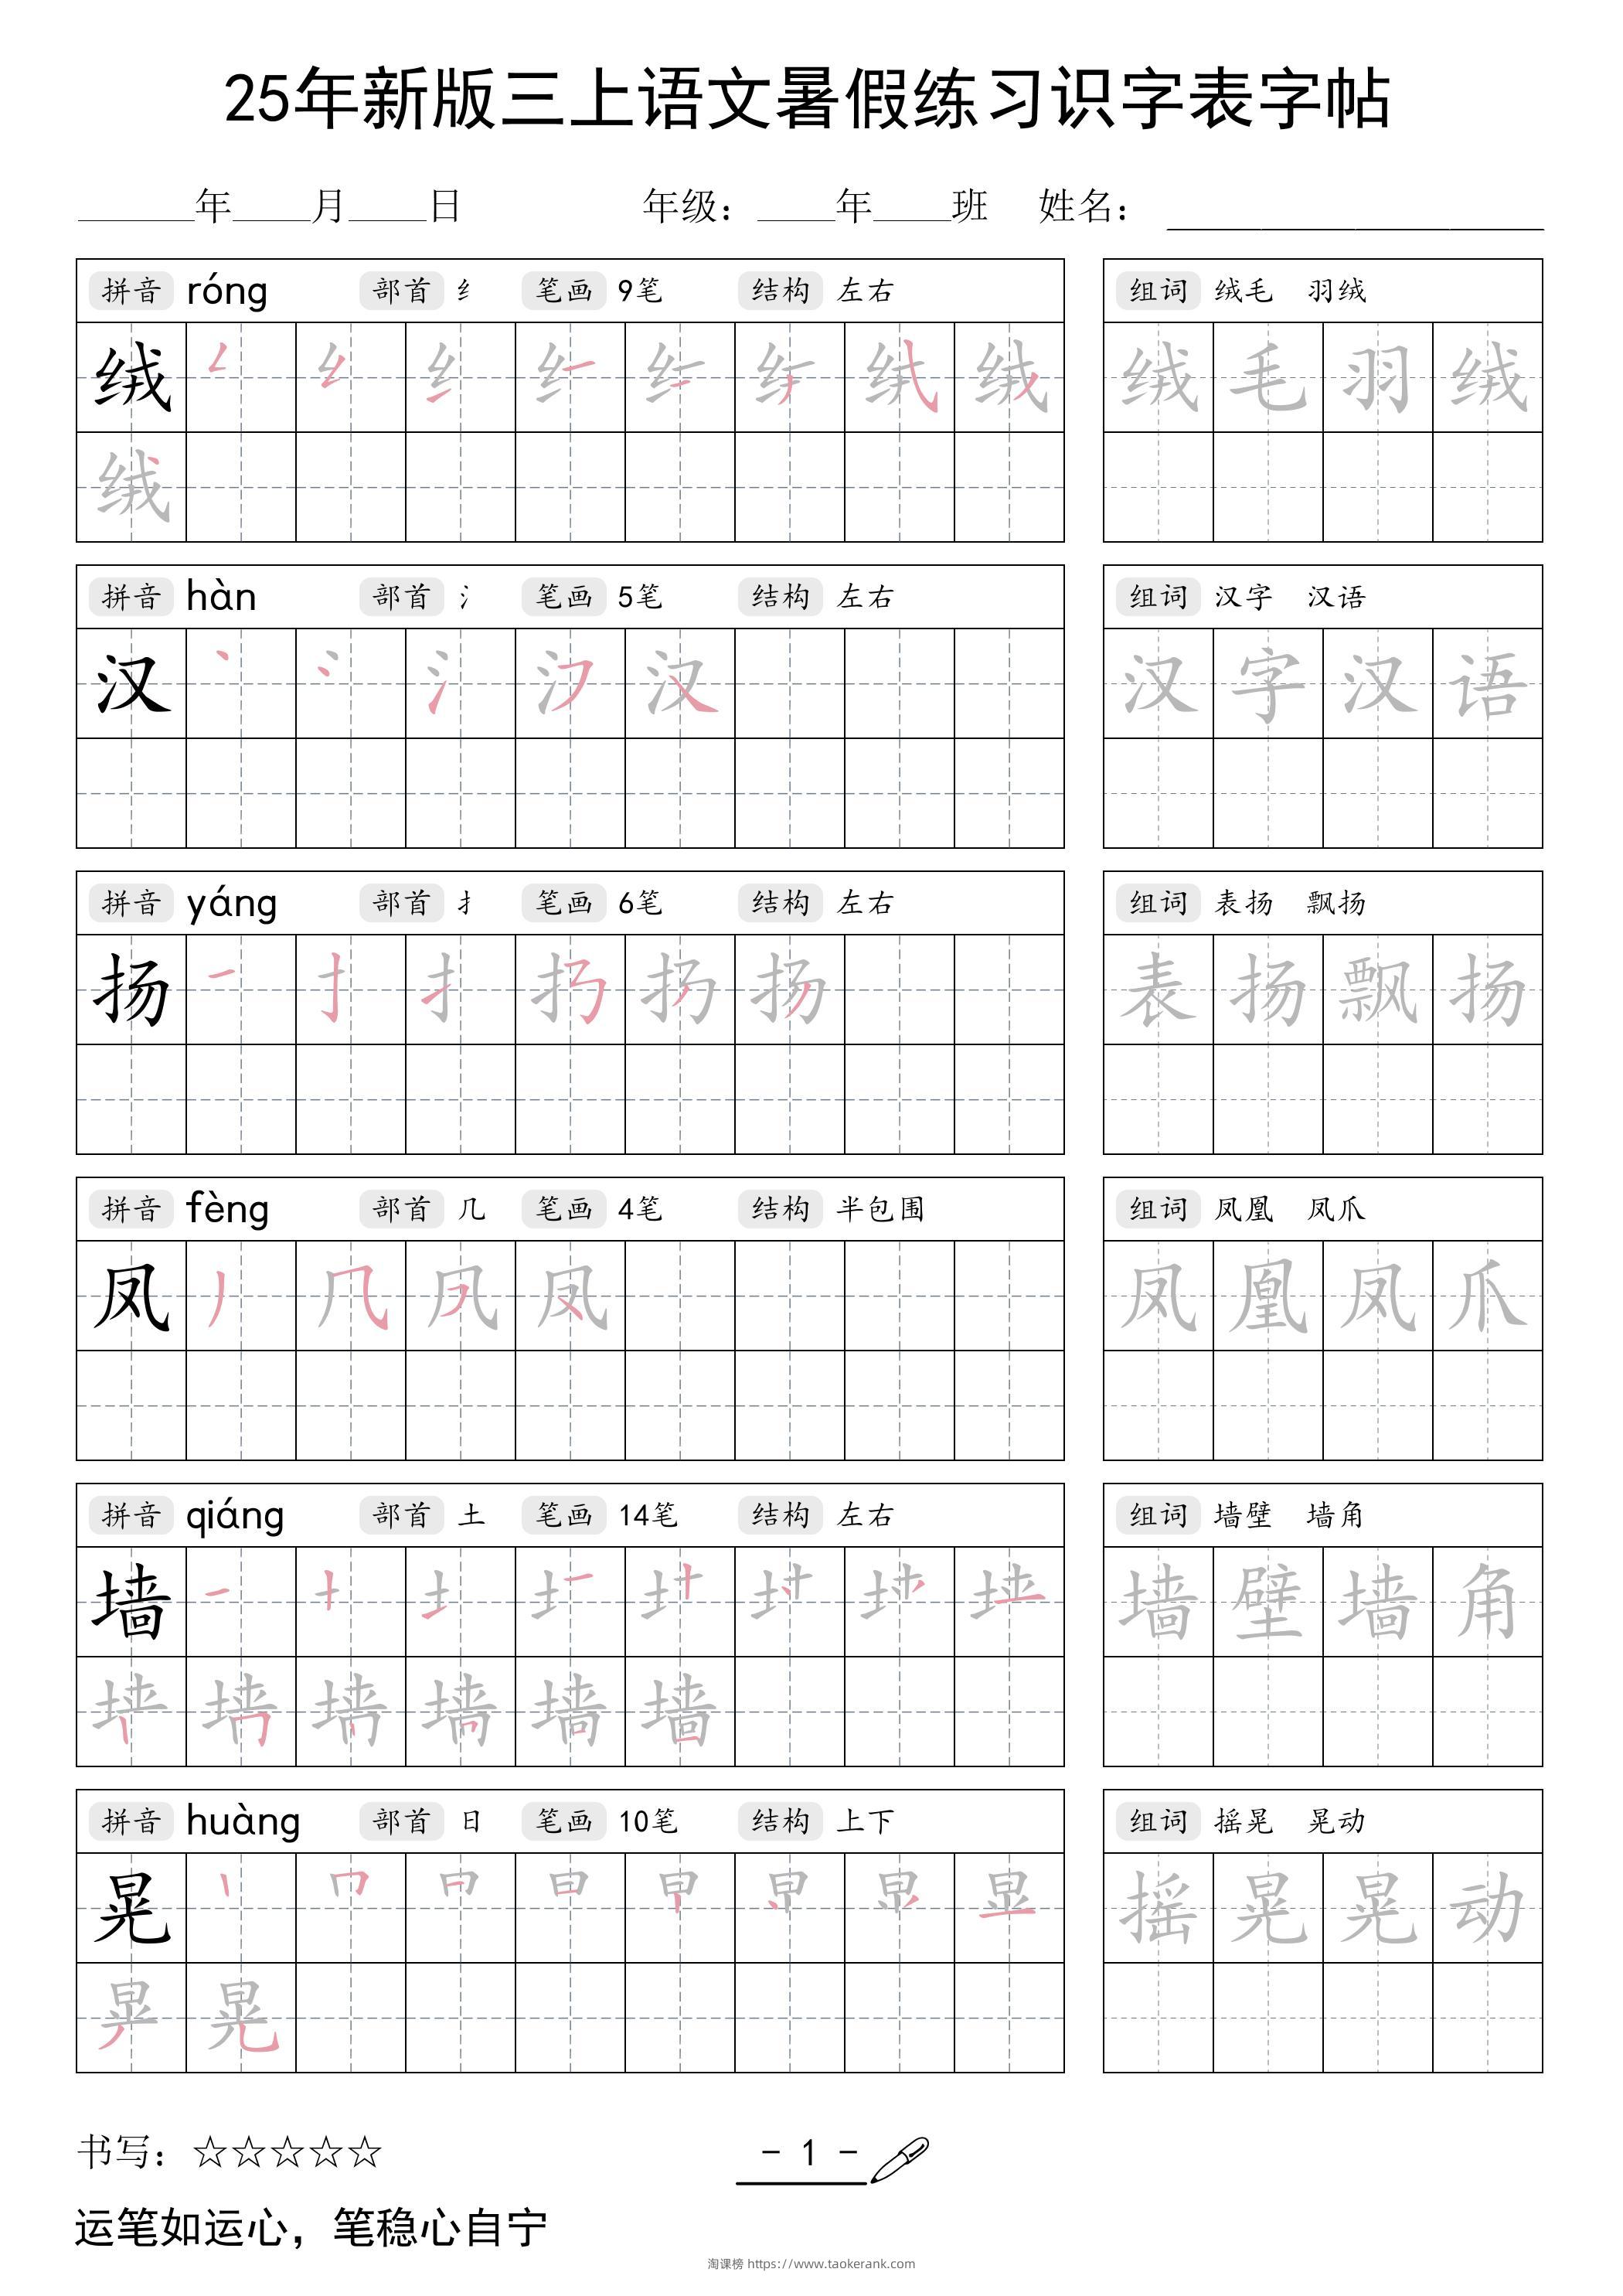 25年新版三上语文暑假练习识字表字帖
______年____月____日 年级：____年____班 姓名：____________________
拼音 róng 部首 纟 笔画 9笔 结构 左右 组词 绒毛 羽绒
绒 绒 毛 羽 绒
绒
拼音 hàn 部首 氵 笔画 5笔 结构 左右 组词 汉字 汉语
汉 汉 字 汉 语
拼音 yáng 部首 扌 笔画 6笔 结构 左右 组词 表扬 飘扬
扬 扬 表 扬 飘 扬
拼音 fèng 部首 几 笔画 4笔 结构 半包围 组词 凤凰 凤爪
凤 凤 凤 凰 凤 爪
拼音 qiáng 部首 土 笔画 14笔 结构 左右 组词 墙壁 墙角
墙 墙 壁 墙 角
墙
拼音 huàng 部首 日 笔画 10笔 结构 上下 组词 摇晃 晃动
晃 摇 晃 晃 动
晃
书写：☆☆☆☆☆ - 1 -
运笔如运心，笔稳心自宁
淘课榜 https://www.taokerank.com